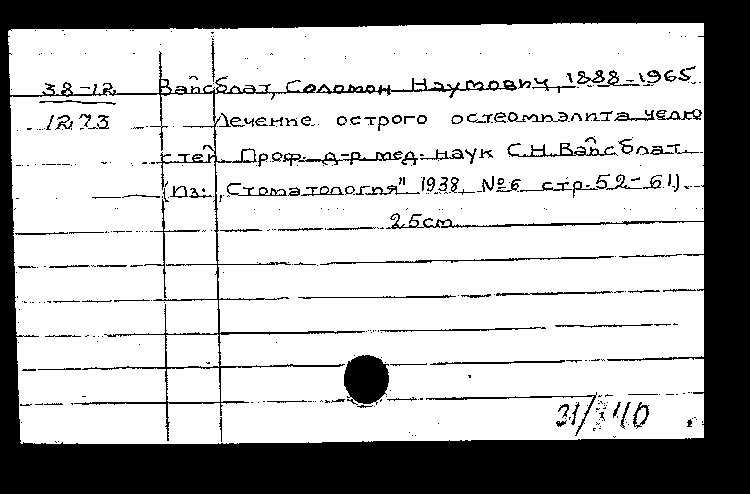 38-12 Вайсблат, Соломон Наумович, 1888-1965
1273 Лечение острого остеомиэлита челю
стей. Проф. д-р мед. наук С.Н. Вайсблат.
(Из: „Стоматология" 1938, №6 стр. 52-61).
25см.